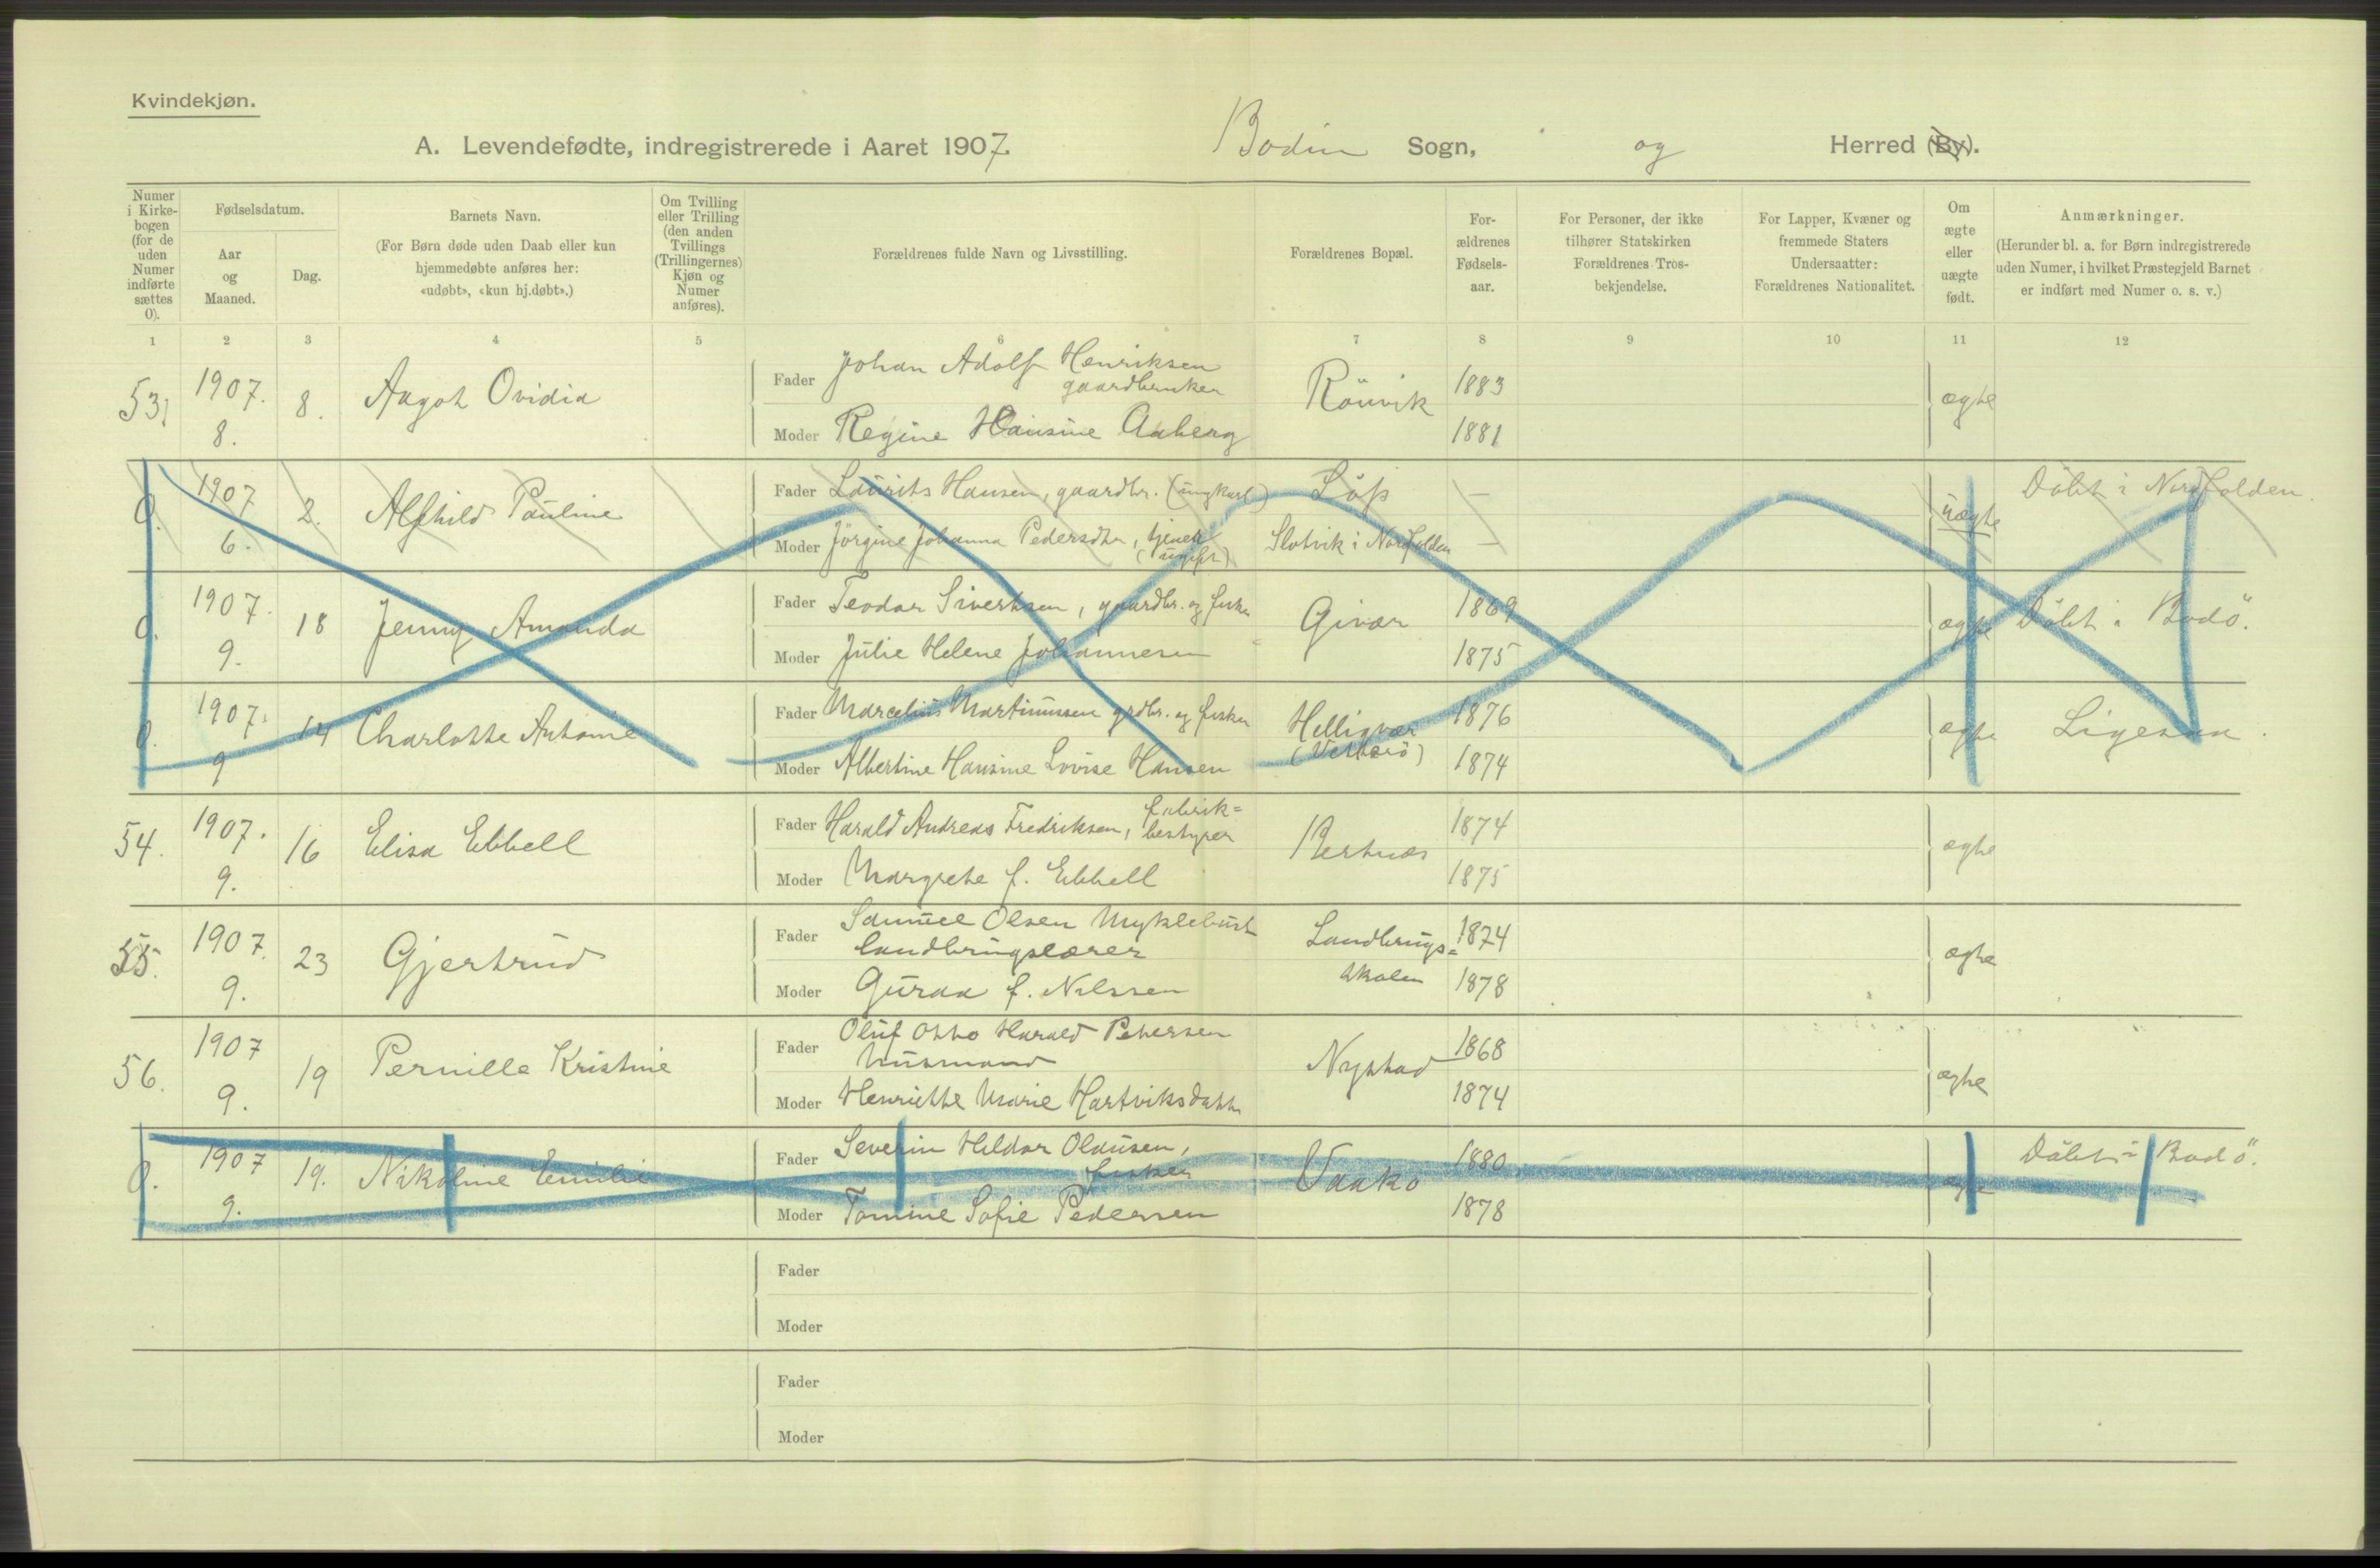 Kvindekjøn.
A. Levendefødte, indregistrerede i Aaret 1907. Bodin Sogn, og Herred (By).
Numer i Kirkebogen (for de uden Numer indførte sættes 0).
Fødselsdatum.
Aar og Maaned.
Dag.
Barnets Navn.
(For Børn døde uden Daab eller kun hjemmedøbte anføres her: «udøbt», «kun hj.døbt».)
Om Tvilling eller Trilling (den anden Tvillings (Trillingernes) Kjøn og Numer anføres).
Forældrenes fulde Navn og Livsstilling.
Forældrenes Bopæl.
Forældrenes Fødselsaar.
For Personer, der ikke tilhører Statskirken Forældrenes Trosbekjendelse.
For Lapper, Kvæner og fremmede Staters Undersaatter: Forældrenes Nationalitet.
Om ægte eller uægte født.
Anmærkninger.
(Herunder bl. a. for Børn indregistrerede uden Numer, i hvilket Præstegjeld Barnet er indført med Numer o. s. v.)
1 2 3 4 5 6 7 8 9 10 11 12
53, 1907. 8. 8. Aagot Ovidia
Fader Johan Adolf Henriksen gaardbruker Rönvik 1883 ægte
Moder Regine Hansine Aaberg 1881
0. 1907 6. 2. Alfhild Pauline
Fader Laurits Hansen, gaardbr. (ungkarl) Löp — uægte Döbt i Nordfolden.
Moder Jörgine Johanna Pedersdtr, tjenek (ugift) Slotvik i Nordfolden —
0. 1907. 9. 18 Jenny Amanda
Fader Teodor Sivertsen, gaardbr. og fisker Givær 1869 ægte Döbt i Bodö.
Moder Julie Helene Johannesen 1875
0. 1907. 9 14 Charlotte Antonie
Fader Marcelius Martinussen grdbr. og fisker Helligvær (Vokkerö) 1876 ægte Ligesaa.
Moder Albertine Hansine Lovise Hansen 1874
54. 1907. 9. 16 Elisa Ebbell
Fader Harald Andreas Fredriksen, fabrik= bestyrer Bertnes 1874 ægte
Moder Margrete f. Ebbell 1875
55. 1907. 9. 23 Gjertrud
Fader Samuel Olsen Myklebust landbrugslærer Landbrugs= skolen 1874 ægte
Moder Guraa f. Nilssen 1878
56. 1907 9. 19 Pernille Kristine
Fader Oluf Otto Harald Petersen husmand Nystad 1868 ægte
Moder Henriette Marie Hartviksdatter 1874
0. 1907 9. 19. Nikoline Emilie
Fader Severin Hildor Olausen, fisker 1880 ægte Döbt i Bodö.
Moder Tomine Sofie Pedersen 1878
Fader
Moder
Fader
Moder